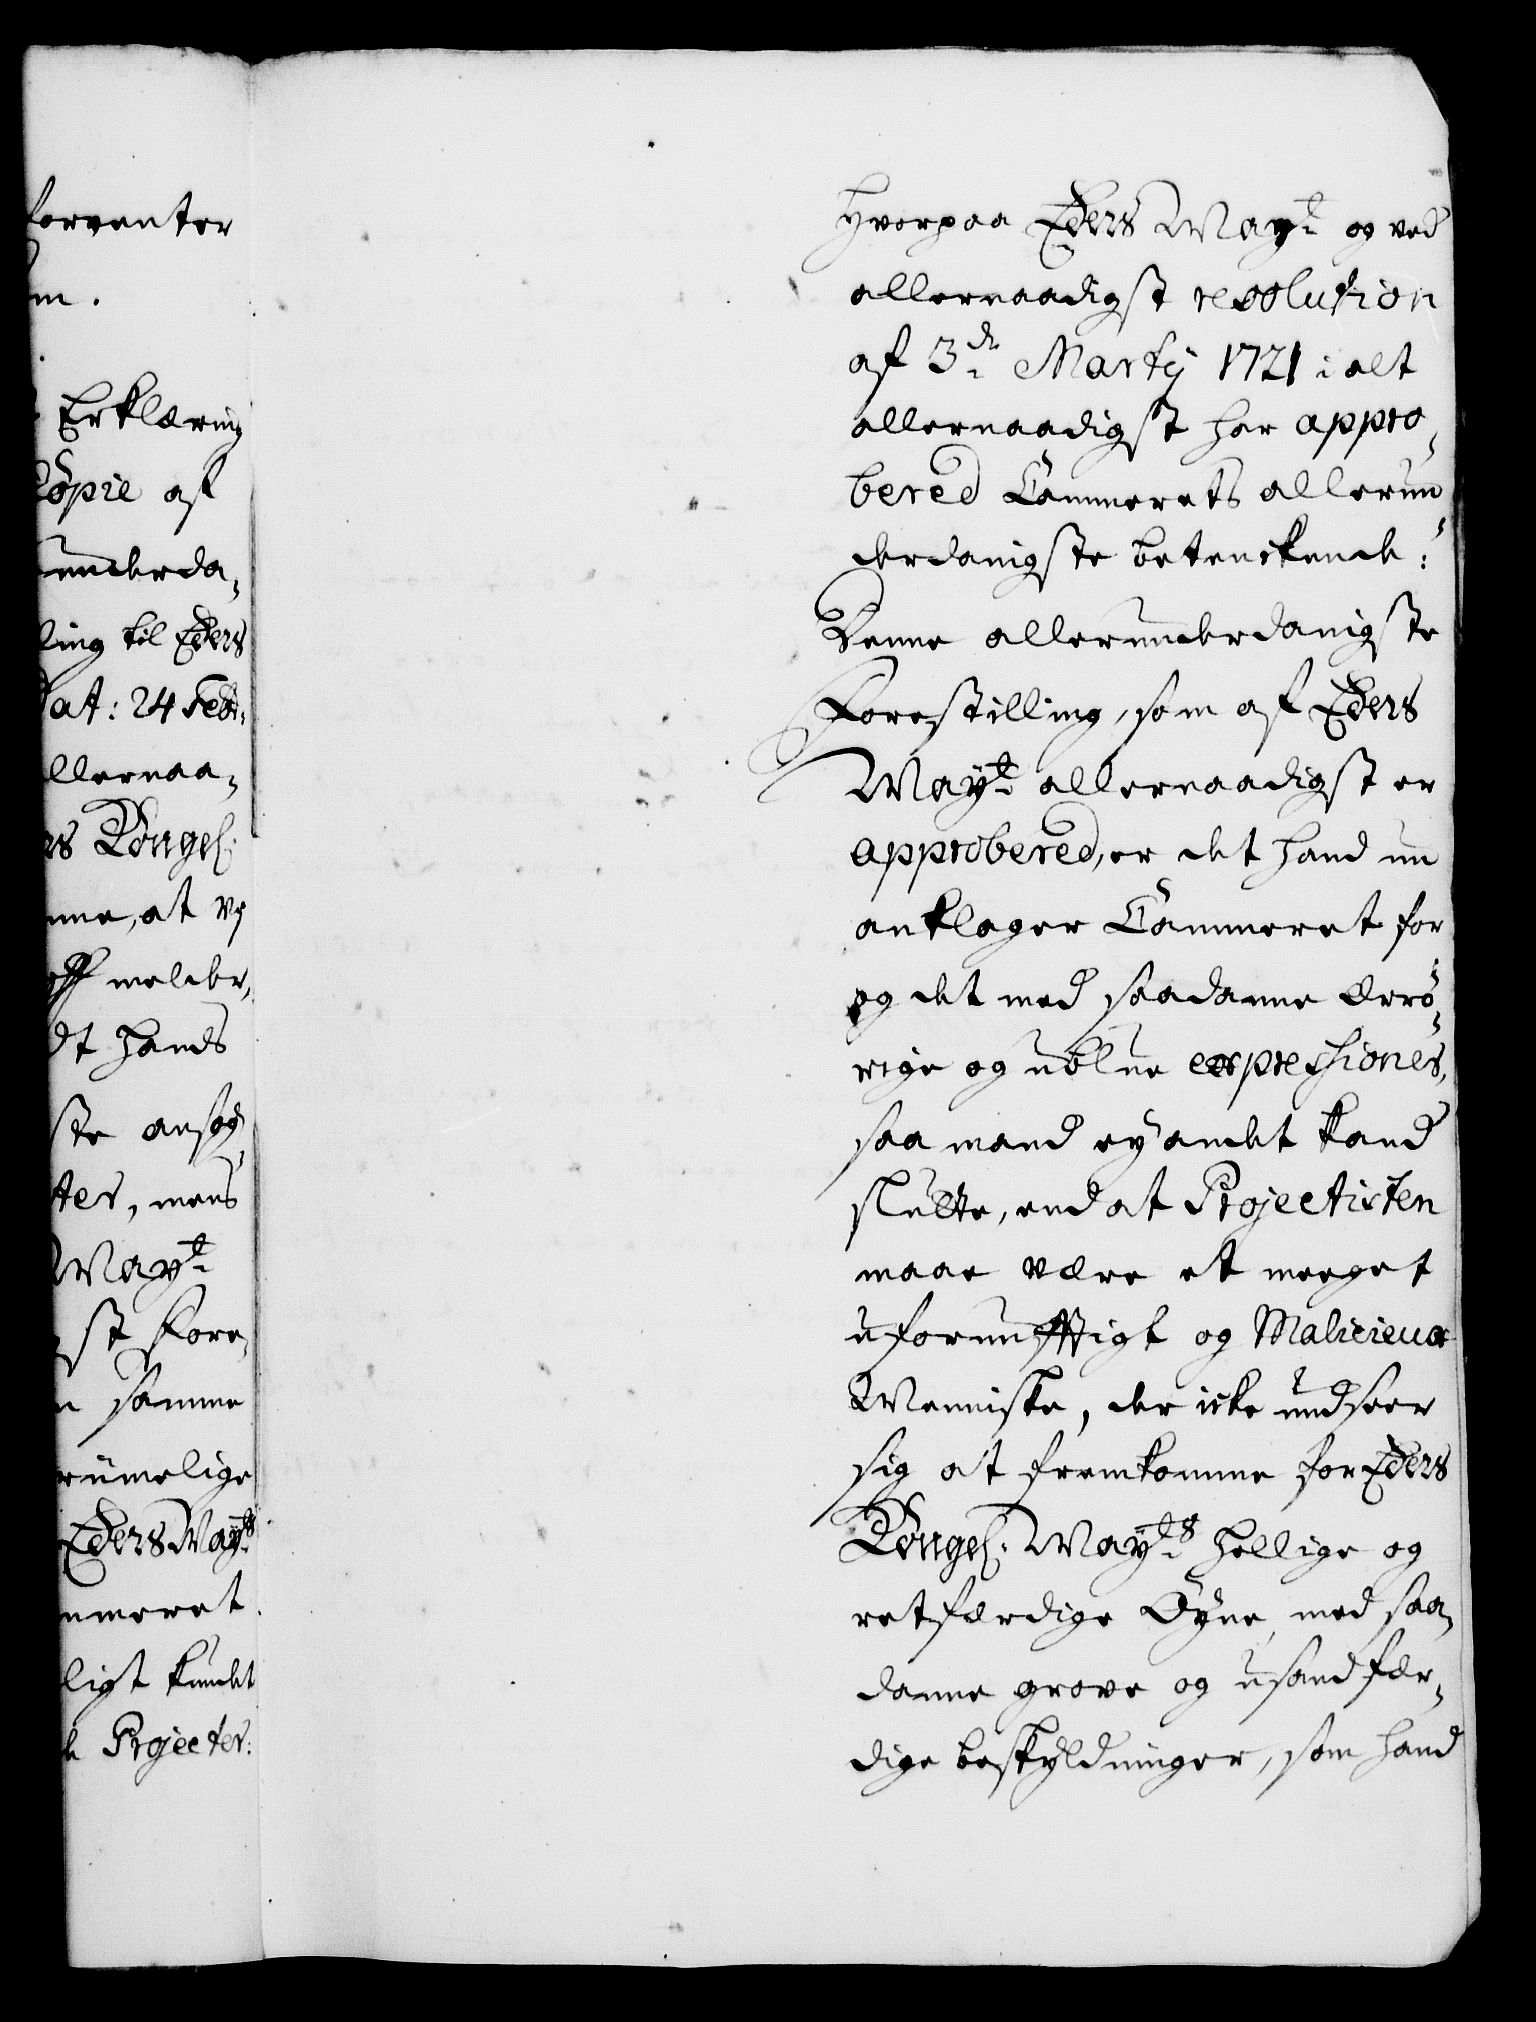 forventer
m.
Erklæring
Copie af
underda-
ling til Eders
Dat: 24 Febr:
llernaa-
rs Kongel:
nne, at vj
melder,
dt hands
ste ansøg
ter, mens
Mayt:
st Fore-
n samme
rimelige
Eders Mayts
mmeret
ligt kundet
Projecter:
Hvorpaa Eders Mayt: og ved
allernaadigst resolution
af 3de Martij 1721 i alt
allernaadigst har appro-
bered Cammerets allerun-
derdanigste betenckende:
Denne allerunderdanigste
Forestilling, som af Eders
Mayt: allernaadigst er
approbered, er det hand nu
anklager Cammeret for
og det med saadanne ærrø-
rige og ublue expressiones,
saa mand ey andet kand
slutte, end at Projectisten
maae være et meeget
ufornufftigt og Malicieux
Menniske, der icke undseer
sig at fremkomme for Eders
Kongel: Mayts: hellige og
retfærdige Øyne, med saa-
danne grove og usandfær-
dige beskyldninger, som hand